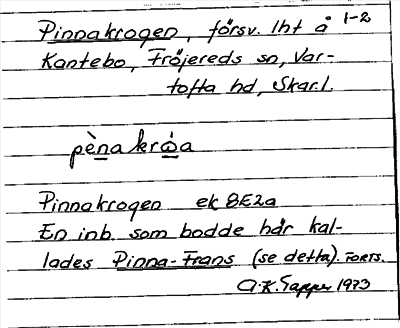 Pinnakrogen, försv. lht å 1-2
Kantebo, Fröjereds sn, Var-
tofta hd, Skar.l.
pènakróa
Pinnakrogen ek 8E2a
En inb. som bodde här kal-
lades Pinna-Frans (se detta). FORTS.
A.K. Tapper 1973